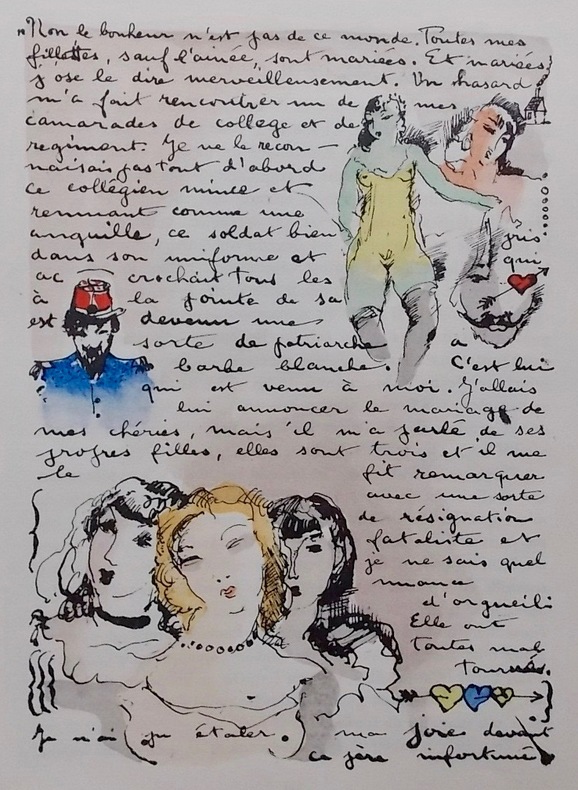 "Non le bonheur n'est pas de ce monde. Toutes mes
fillettes, sauf l'ainée, sont mariées. Et mariées
j'ose le dire merveilleusement. Un hasard
m'a fait rencontrer un de mes
camarades de collège et de
regiment. Je ne le recon-
naisais pas tout d'abord
ce collégien mince et
remuant comme une
anguille, ce soldat bien pris
dans son uniforme et qui
ac crochait tous les
à la pointe de sa
est devenu une
sorte de patriarche a
barbe blanche. C'est lui
qui est venu à moi. J'allais
lui annoncer le mariage de
mes chéries, mais il m'a parlé de ses
propres filles, elles sont trois et il me
le fit remarquer
avec une sorte
de résignation
fataliste et
je ne sais quel
nuance
d'orgueil:
Elle ont
toutes mal
tournés.
Je n'ai pu étaler ma joies devant
ce père infortuné